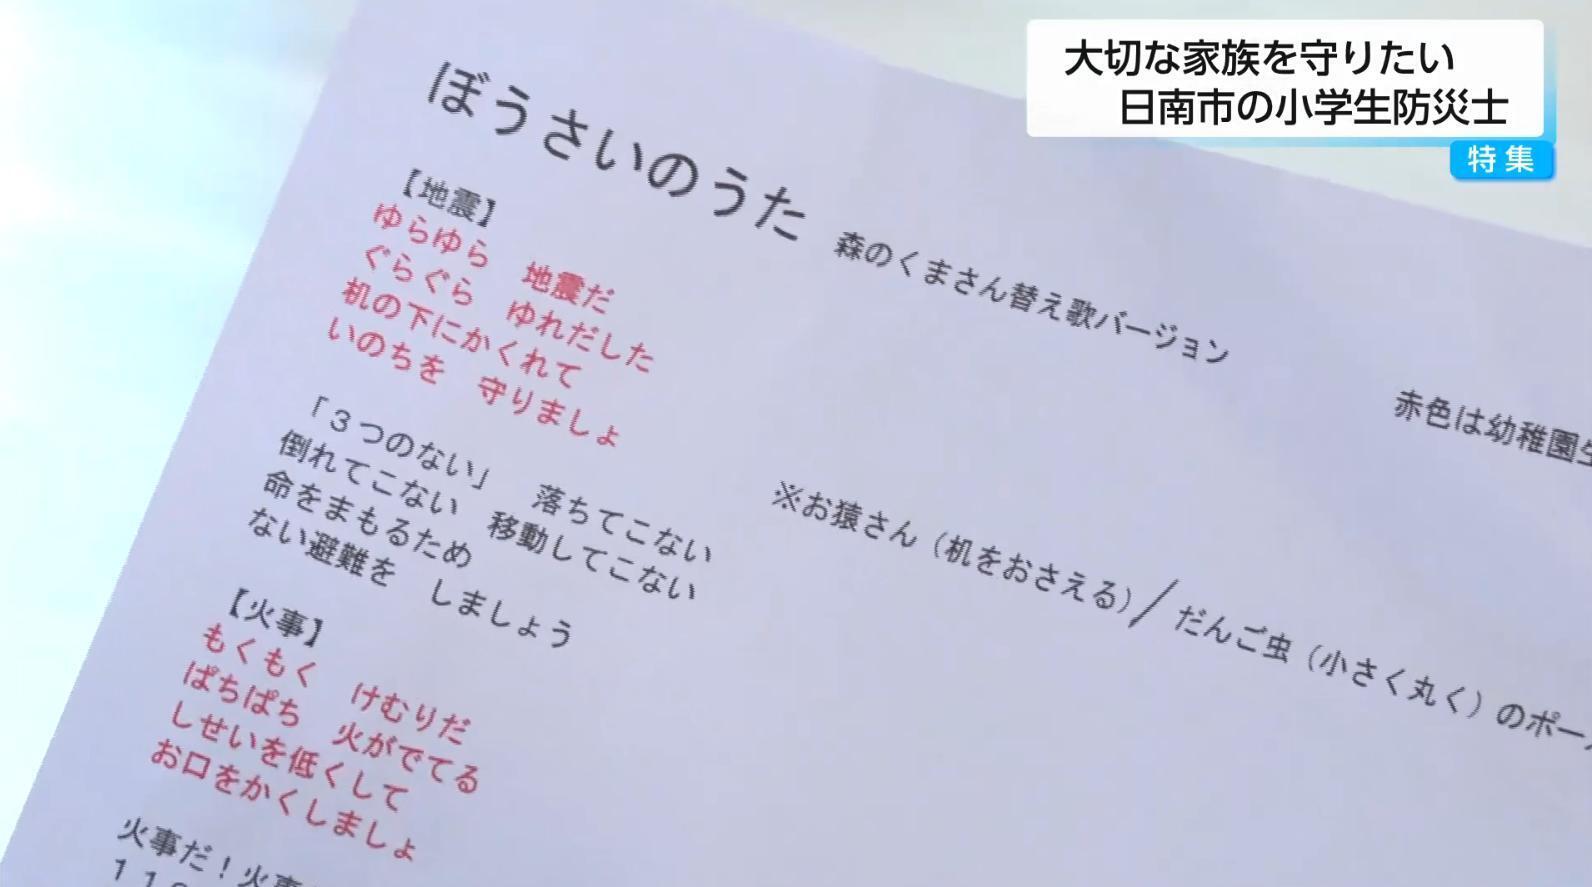 大切な家族を守りたい
日南市の小学生防災士
特集
ぼうさいのうた　森のくまさん替え歌バージョン
赤色は幼稚園生
【地震】
ゆらゆら　地震だ
ぐらぐら　ゆれだした
机の下にかくれて
いのちを　守りましょ
「３つのない」　落ちてこない
倒れてこない　移動してこない
命をまもるため
ない避難を　しましょう
※お猿さん（机をおさえる）／だんご虫（小さく丸く）のポー
【火事】
もくもく　けむりだ
ぱちぱち　火がでてる
しせいを低くして
お口をかくしましょ
火事だ！火事
１１